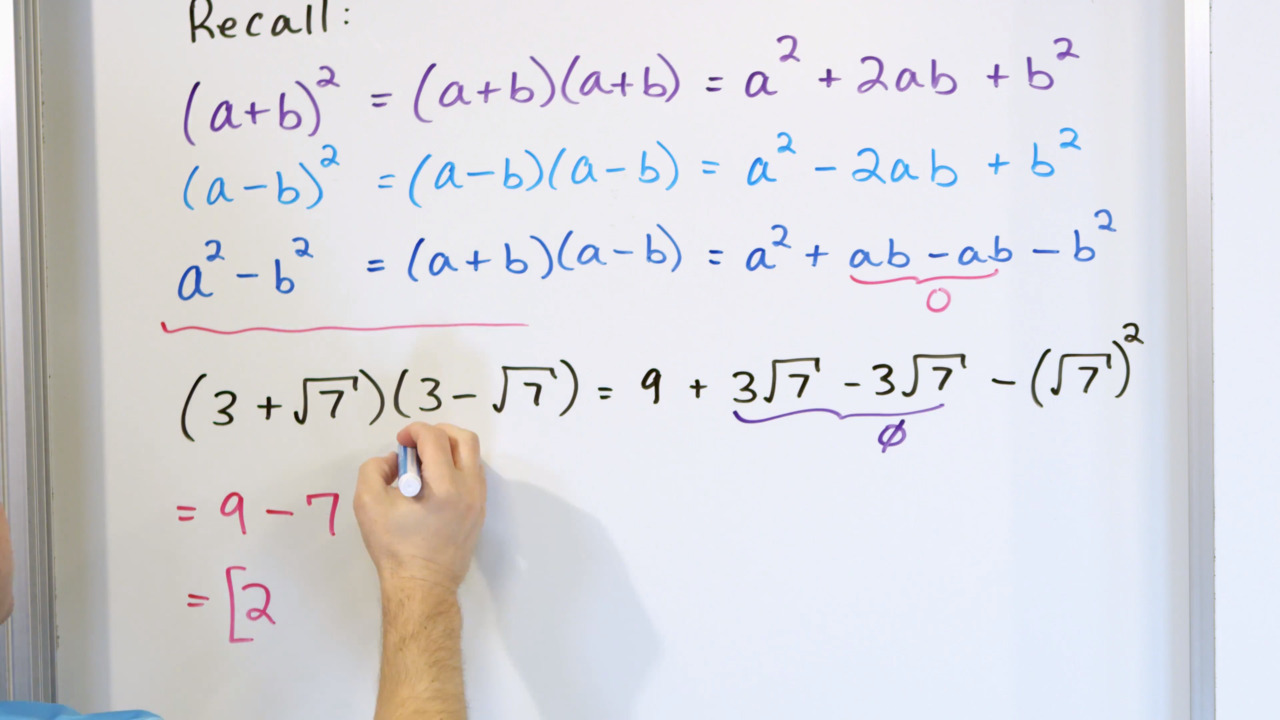 Recall:
(a+b)² = (a+b)(a+b) = a² + 2ab + b²
(a-b)² = (a-b)(a-b) = a² - 2ab + b²
a² - b² = (a+b)(a-b) = a² + ab - ab - b²
0
(3 + √7)(3 - √7) = 9 + 3√7 - 3√7 - (√7)²
∅
= 9 - 7
= [2